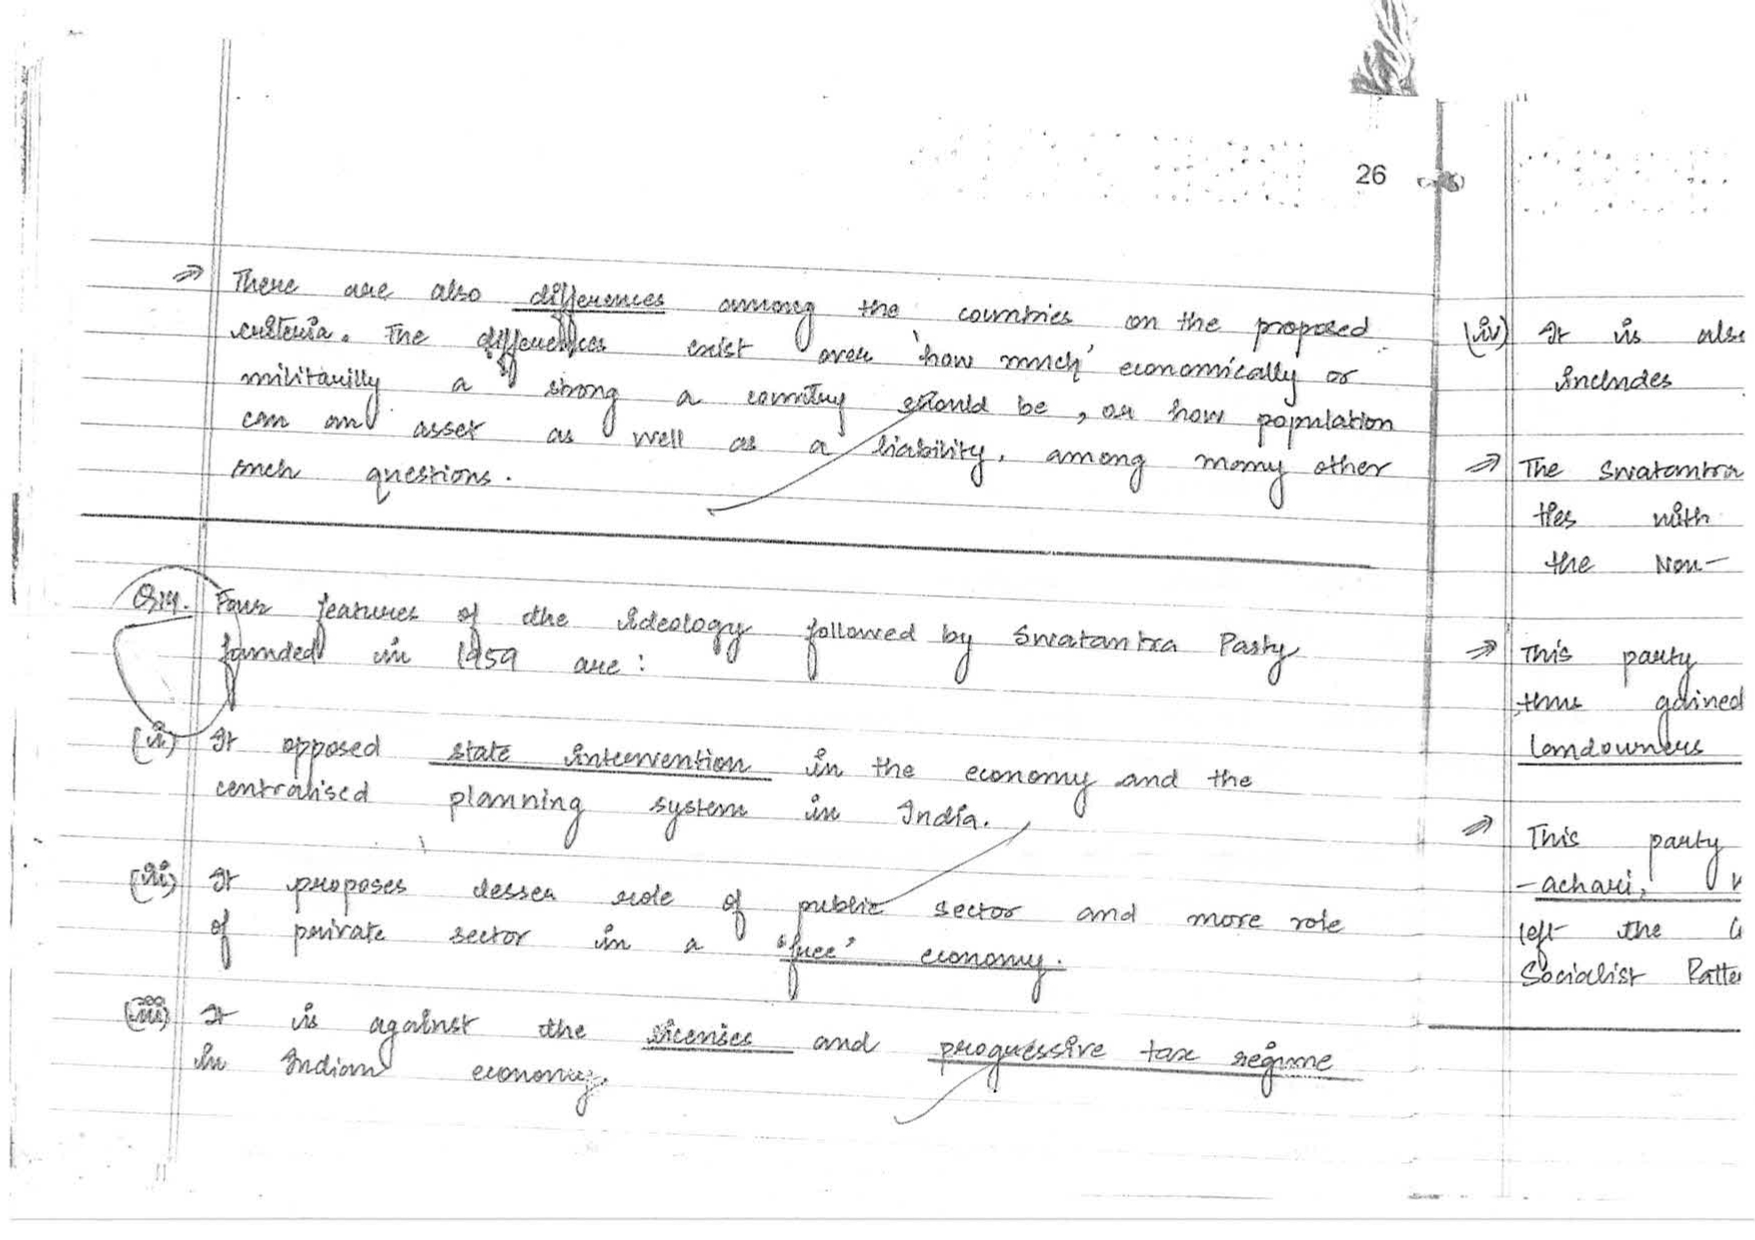 26
⇒ There are also differences among the countries on the proposed
criteria. The differences exist over 'how much' economically or
militarilly a strong a country should be, or how population
can an asset as well as a liability, among many other
such questions.
Q14. Four features of the ideology followed by Swatantra Party
founded in 1959 are:
(i) It opposed state intervention in the economy and the
centralised planning system in India.
(ii) It proposes lesser role of public sector and more role
of private sector in a 'free' economy.
(iii) It is against the licenses and progressive tax regime
in Indian economy.
(iv) It is also
includes
⇒ The Swatantra
ties with
the Non-
⇒ This party
thus gained
landowners
⇒ This party
-achari,
left the
Socialist Patte